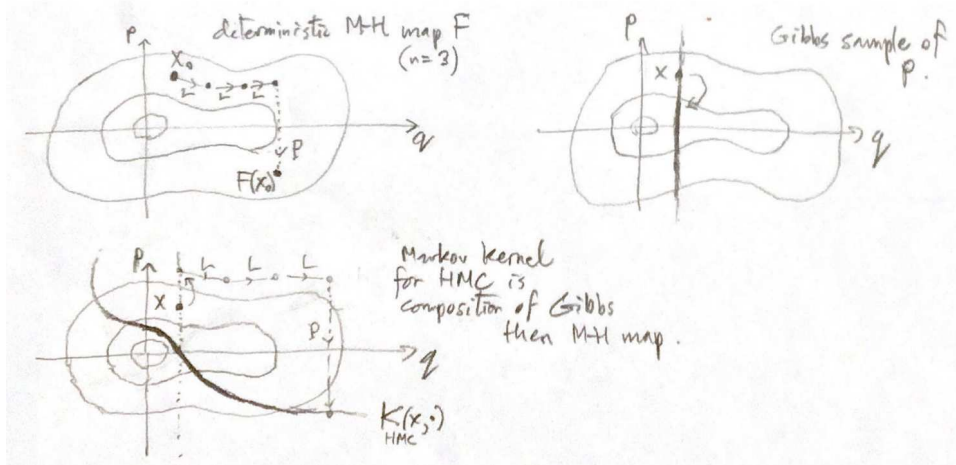 deterministic M-H map F
(n=3)
P
X₀
L L L
q
P
F(x₀)
Gibbs sample of
p.
P
x
q
Markov kernel
for HMC is
composition of Gibbs
then M-H map.
P
L L L
x
P
q
K(x,·)
HMC